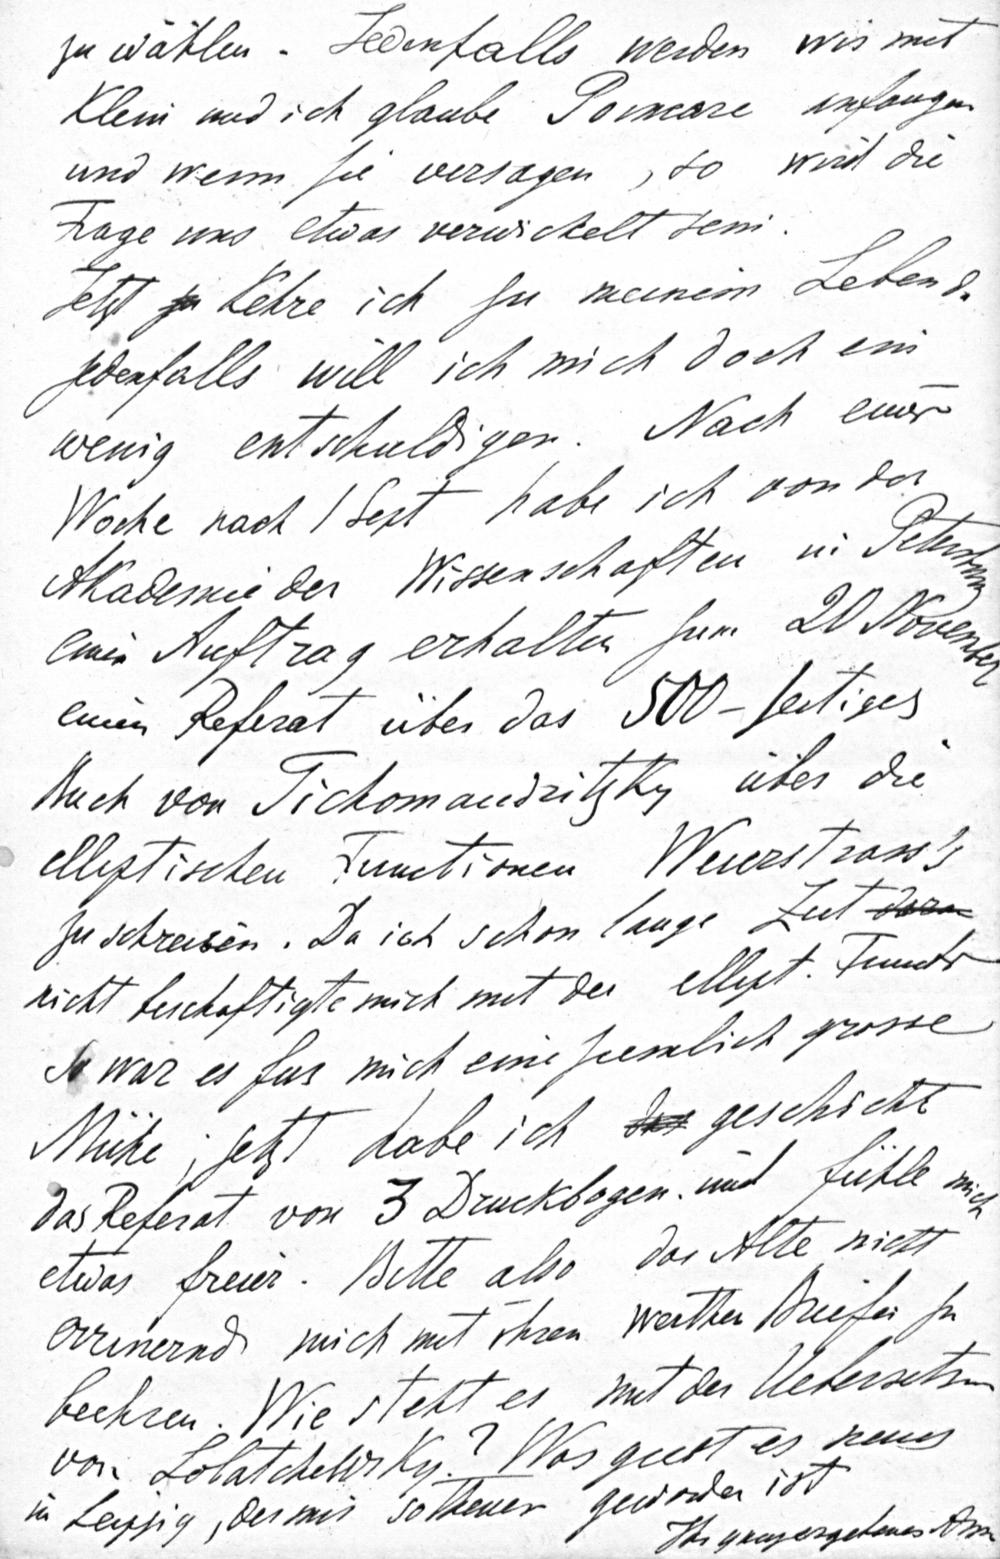 zu wählen. Jedenfalls werden wir mit
Klein und ich glaube Poincare anfangen
und wenn sie versagen, so wird die
Frage uns etwas verwickelt sein.
Jetzt zu Kehre ich zu meinem Leben d.
jedenfalls will ich mich doch ein
wenig entschuldigen. Nach einer
Woche nach 1 Sept habe ich von der
Akademie der Wissenschaften in Petersburg
einen Auftrag erhalten zum 20 November
einen Referat über das 500-seitiges
Buch von Tichomandritzky über die
elliptischen Functionen Weierstrass's
zu schreiben. Da ich schon lange Zeit
nicht beschaftigte mich mit der ellipt. Funct
so war es fur mich eine ziemlich grosse
Mühe; jetzt habe ich geschickt
das Referat von 3 Druckbogen. und fühle mich
etwas freier. Bitte also das Alte nicht
errinernd mich mit ihren werthen Briefen zu
beehren. Wie steht es mit der Uebersetzun
von Lobatchewsky? Was giebt es neues
in Leipzig, der mir so theuer geworden ist
Ihr ganz ergebenes